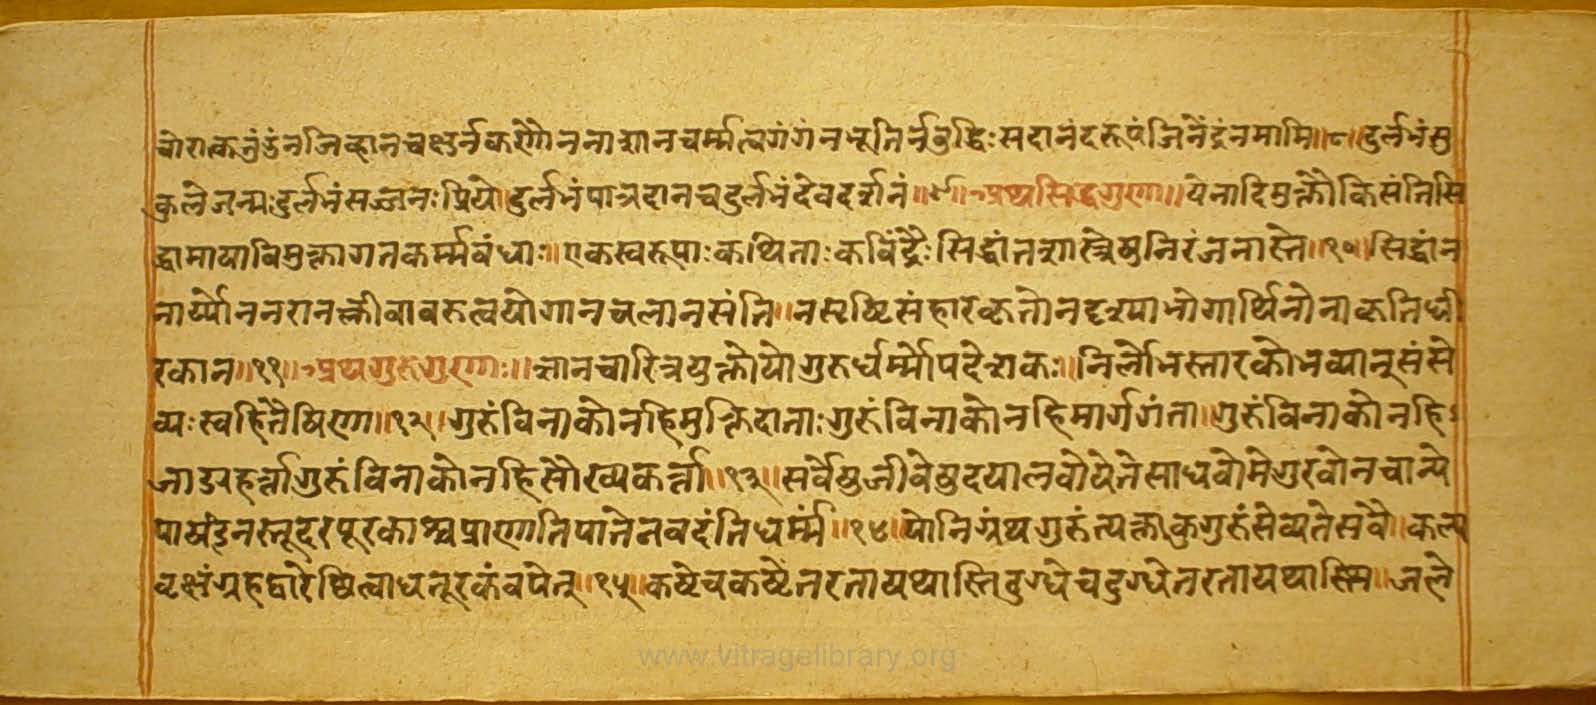 वोरात्कतुंडंनजिव्हानचक्षुर्नकर्णौननाशानचर्म्मत्वगंगंनभूतिर्नबुद्धिःसदानंदरूपंजिनेंद्रंनमामि॥८॥दुर्लभंसु
कुलेजन्मःदुर्लभंसज्जनःप्रियो॥दुर्लभंपात्रदानचदुर्लभंदेवदर्शनं॥९॥अथसिद्धगुणा॥येनादिमुक्तौकिसंतिसि
द्धामायाविमुक्तागतकर्म्मबंधाः॥एकस्वरूपाःकथिताःकविंद्रैःसिद्धांतशास्त्रेषुनिरंजनास्ते॥१०॥सिद्धांन
नार्य्योननरानक्लीवावरुत्वयोगानचलानसंति॥नसृष्टिसंहारकृतोनदृश्याभोगार्थिनोनाकृतिधी
रकान॥११॥अथगुरुगुणाः॥ज्ञानचारित्रयुक्तोयोगुरुर्धर्म्मोपदेशकः॥निर्लोभस्तारकोभव्यानूसंसे
व्यःस्वहितैषिणा॥१२॥गुरुंविनाकोनहिमुक्तिदाताःगुरुंविनाकोनहिमार्गगंता॥गुरुंविनाकोनहि
जाड्यहर्त्तागुरुंविनाकोनहिसौख्यकर्त्ता॥१३॥सर्वेषुजीवेषुदयालवोयेतेसाधवोमेगुरवोनचान्ये
पाषंडनस्तूदरपूरकाश्चप्राणातिपातेनवदंतिधर्म्मं॥१४॥योनिग्रंथगुरुंत्यक्ताकुगुरुंसेव्यतेसवै॥कल्प
वृक्षंग्रहद्वारेछित्वाधतूरकंवपेत्॥१५॥कष्टेचकष्टेनरतायथास्तिदुग्धेचदुग्धेनरतायथास्मि॥जले
www.vitragelibrary.org